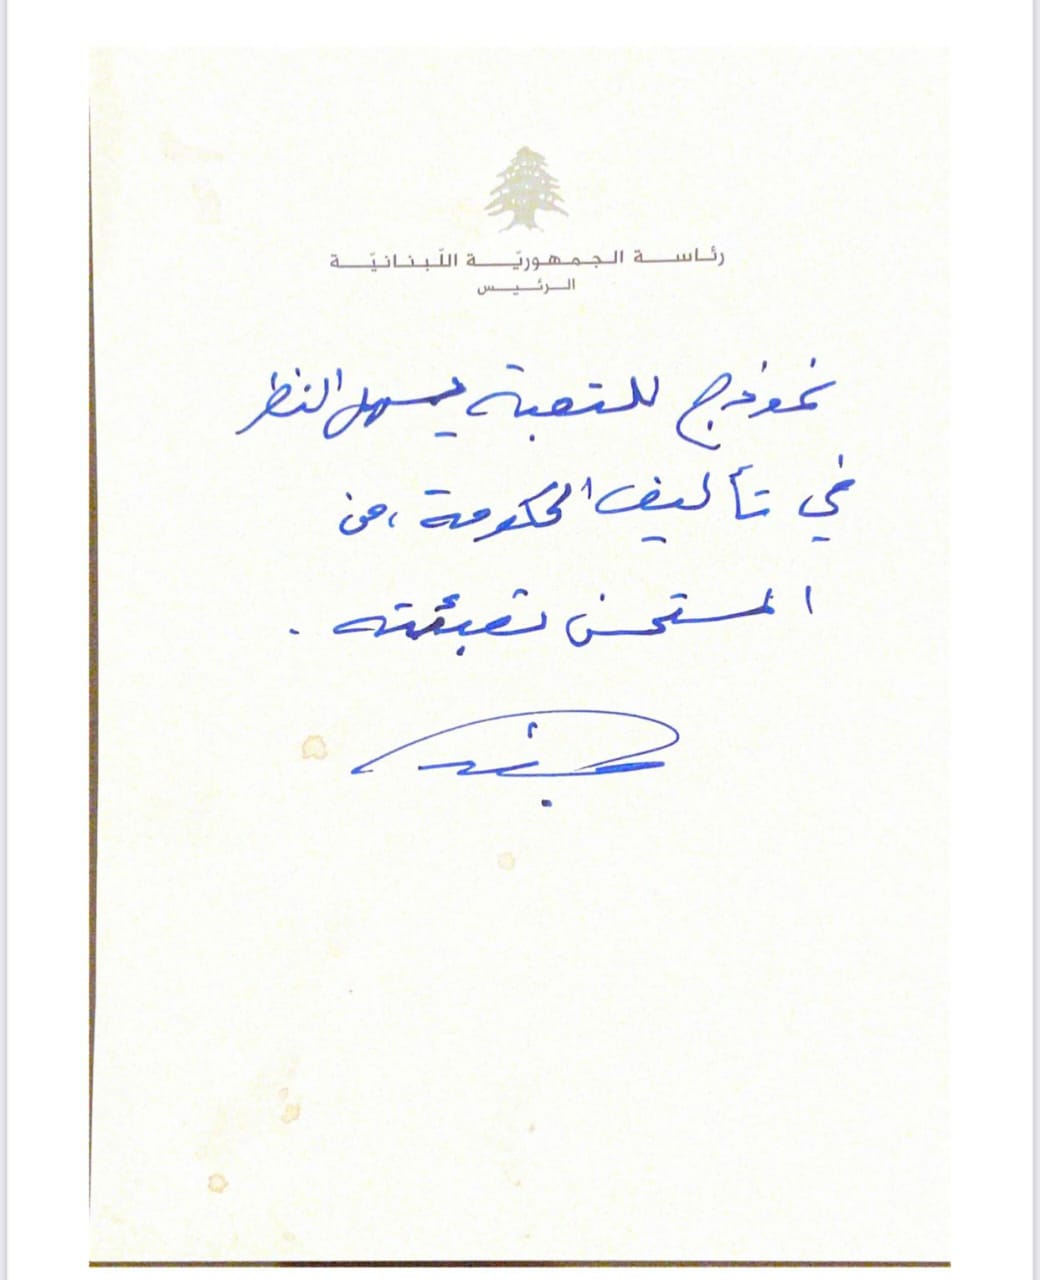 رئاسة الجمهوريّة اللّبنانيّة
الرئيس
نموذج للتعبئة يسهل النظر
في تأليف الحكومة، من
المستحسن تعبئته.